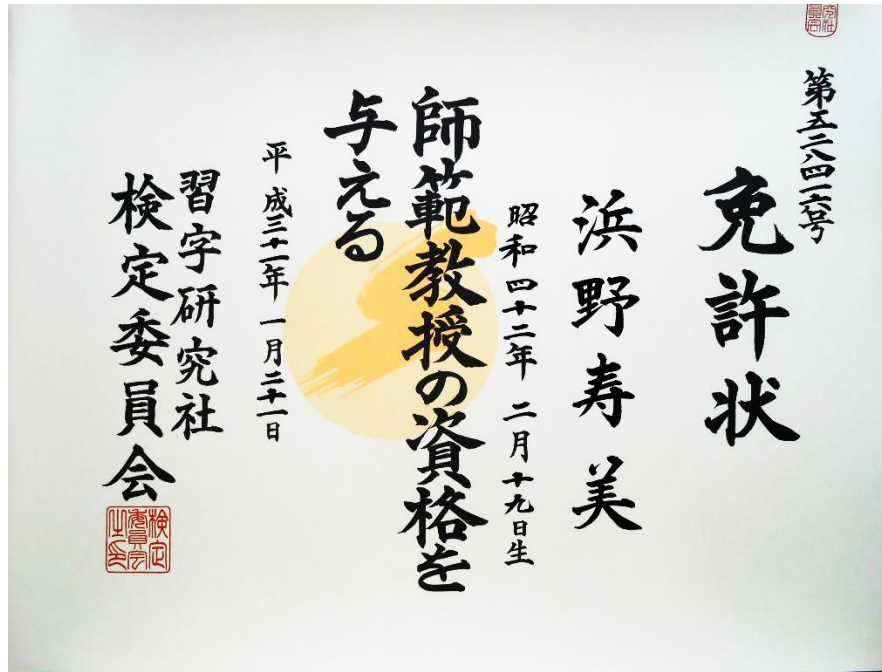 第五二八四一六号
免許状
浜野寿美
昭和四十二年 二月十九日生
師範教授の資格を
与える
平成三十一年 一月二十一日
習字研究社
検定委員会
検定
委員会
之印